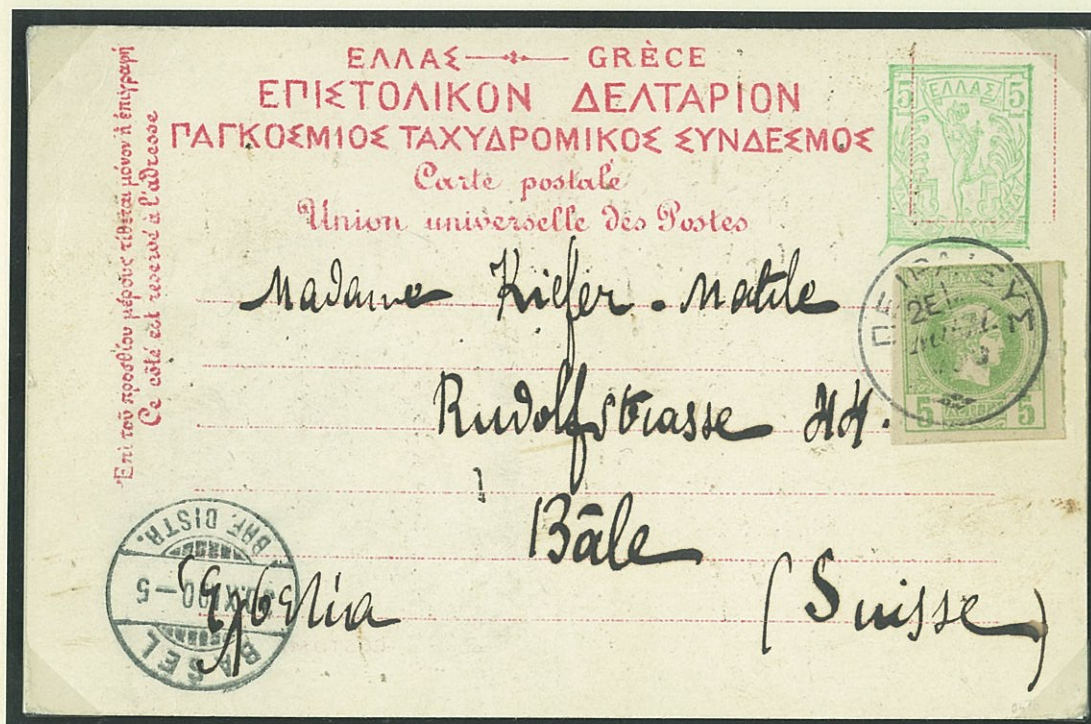 ΕΛΛΑΣ GRÈCE
ΕΠΙΣΤΟΛΙΚΟΝ ΔΕΛΤΑΡΙΟΝ
ΠΑΓΚΟΣΜΙΟΣ ΤΑΧΥΔΡΟΜΙΚΟΣ ΣΥΝΔΕΣΜΟΣ
Carte postale
Union universelle des Postes
Ἐπὶ τοῦ προσθίου μέρους τίθεται μόνον ἡ ἐπιγραφή
Ce coté est reservé à l'adresse
5 ΕΛΛΑΣ 5
ΠΕΙΡΑΙΕΥΣ
5 5
Madame Kiefer-Matile
Rudolfstrasse 44.
Bâle
(Suisse)
Ἑλβετία
BRF. DISTR.
IX.00-5
BASEL